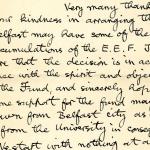 Very many thank
our kindness in arranging th
elfast may have some of the
ccumulations of the E.E.F. J
re that the decision is in ac
nce with the spirit and objec
the Fund, and sincerely hop
me support for the fund may
awn from Belfast city as
from the University in conseq
We start with nothing at a